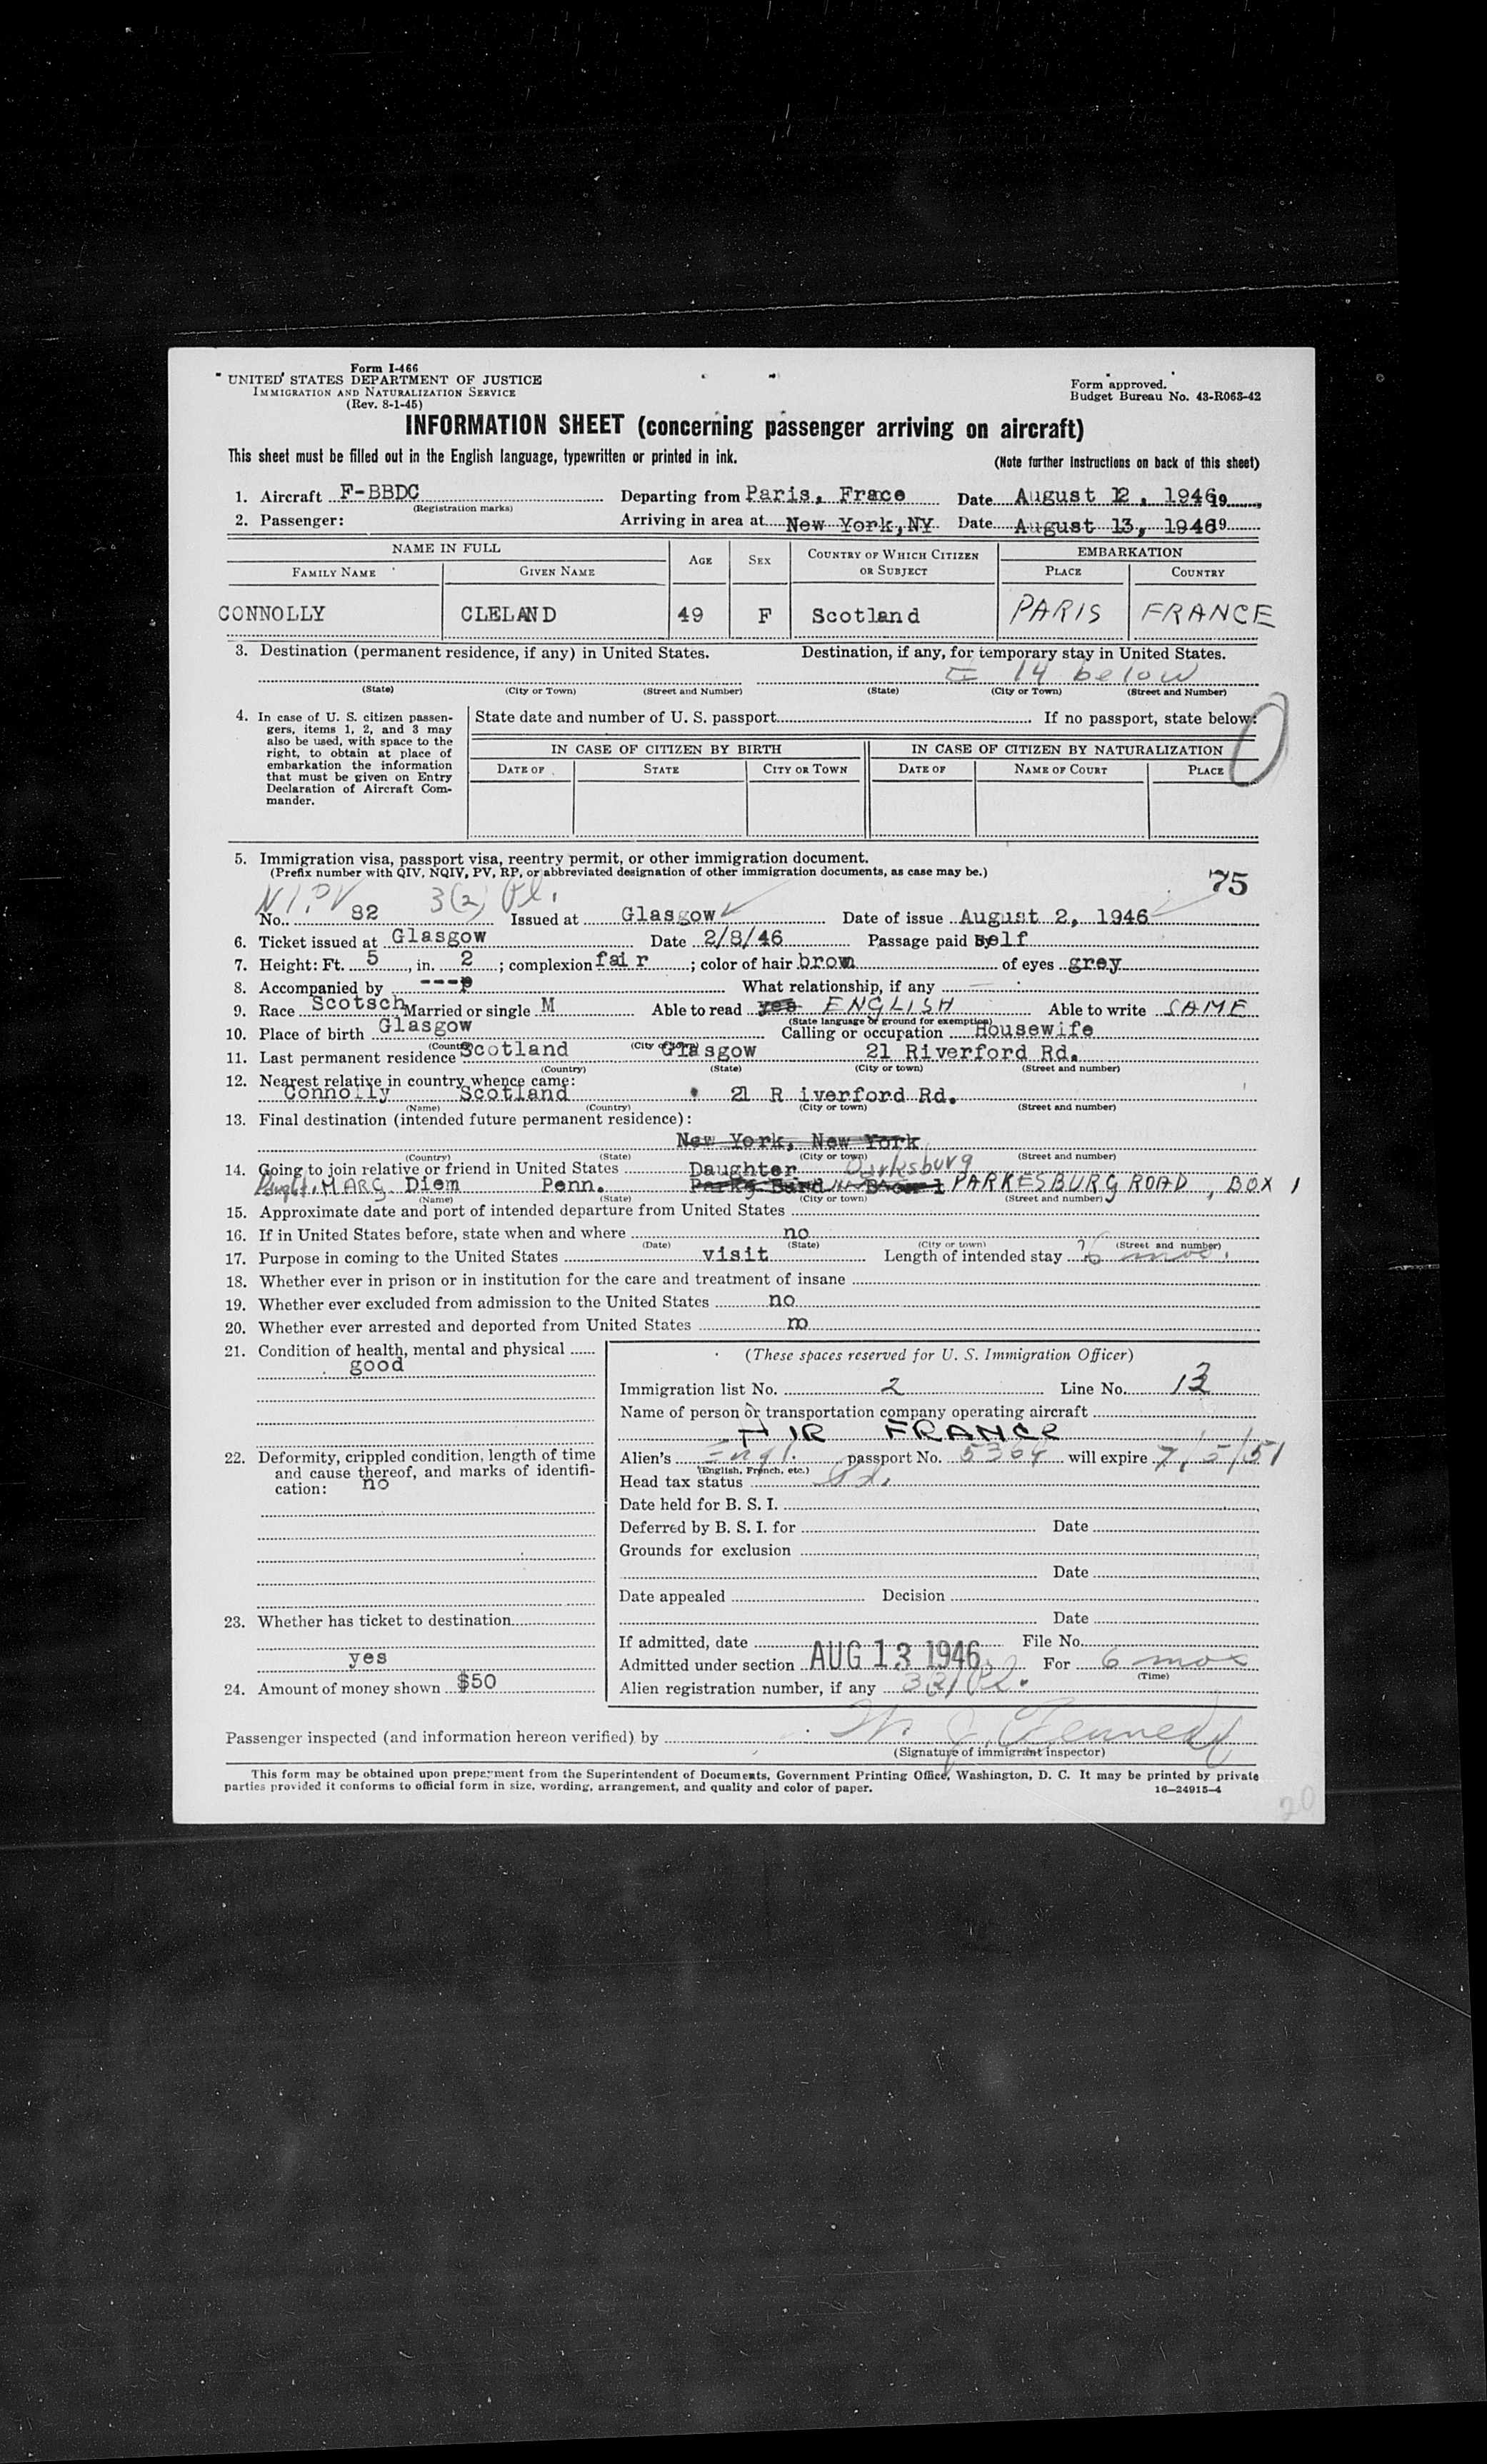 Form I-466
UNITED STATES DEPARTMENT OF JUSTICE
IMMIGRATION AND NATURALIZATION SERVICE
(Rev. 8-1-45)
Form approved.
Budget Bureau No. 43-R063-42
INFORMATION SHEET (concerning passenger arriving on aircraft)
This sheet must be filled out in the English language, typewritten or printed in ink. (Note further instructions on back of this sheet)
1. Aircraft F-BBDC Departing from Paris, Frace Date August 12, 1946 19
(Registration marks)
2. Passenger: Arriving in area at New York, NY Date August 13, 1946 19
NAME IN FULL AGE SEX COUNTRY OF WHICH CITIZEN OR SUBJECT EMBARKATION
FAMILY NAME GIVEN NAME PLACE COUNTRY
CONNOLLY CLELAND 49 F Scotland PARIS FRANCE
3. Destination (permanent residence, if any) in United States. Destination, if any, for temporary stay in United States.
14 below
(State) (City or Town) (Street and Number) (State) (City or Town) (Street and Number)
4. In case of U. S. citizen passengers, items 1, 2, and 3 may also be used, with space to the right, to obtain at place of embarkation the information that must be given on Entry Declaration of Aircraft Commander.
State date and number of U. S. passport If no passport, state below:
IN CASE OF CITIZEN BY BIRTH IN CASE OF CITIZEN BY NATURALIZATION
DATE OF STATE CITY OR TOWN DATE OF NAME OF COURT PLACE
5. Immigration visa, passport visa, reentry permit, or other immigration document.
(Prefix number with QIV, NQIV, PV, RP, or abbreviated designation of other immigration documents, as case may be.) 75
3(2)
No. 82 Issued at Glasgow Date of issue August 2, 1946
6. Ticket issued at Glasgow Date 2/8/46 Passage paid by self
7. Height: Ft. 5, in. 2; complexion fair; color of hair brown of eyes grey
8. Accompanied by ---p What relationship, if any
9. Race Scotsch Married or single M Able to read yes ENGLISH Able to write SAME
(State language or ground for exemption)
10. Place of birth Glasgow Calling or occupation Housewife
(Country) (City or town)
11. Last permanent residence Scotland Glasgow 21 Riverford Rd.
(Country) (State) (City or town) (Street and number)
12. Nearest relative in country whence came:
Connolly Scotland 21 R iverford Rd.
(Name) (Country) (City or town) (Street and number)
13. Final destination (intended future permanent residence):
New York, New York
(Country) (State) (City or town) (Street and number)
14. Going to join relative or friend in United States Daughter
MARG Diem Penn. PARKESBURG ROAD, BOX 1
(Name) (State) (City or town) (Street and number)
15. Approximate date and port of intended departure from United States
16. If in United States before, state when and where no
(Date) (State) (City or town) (Street and number)
17. Purpose in coming to the United States visit Length of intended stay 6 mos.
18. Whether ever in prison or in institution for the care and treatment of insane
19. Whether ever excluded from admission to the United States no
20. Whether ever arrested and deported from United States no
21. Condition of health, mental and physical
good
22. Deformity, crippled condition, length of time and cause thereof, and marks of identification: no
23. Whether has ticket to destination
yes
24. Amount of money shown $50
(These spaces reserved for U. S. Immigration Officer)
Immigration list No. 2 Line No. 13
Name of person or transportation company operating aircraft
AIR FRANCE
Alien's Engl. passport No. 5364 will expire 7/5/51
(English, French, etc.)
Head tax status
Date held for B. S. I.
Deferred by B. S. I. for Date
Grounds for exclusion
Date
Date appealed Decision
Date
If admitted, date AUG 13 1946 File No.
Admitted under section For 6 mos
(Time)
Alien registration number, if any 3(2)
Passenger inspected (and information hereon verified) by
(Signature of immigrant inspector)
This form may be obtained upon prepayment from the Superintendent of Documents, Government Printing Office, Washington, D. C. It may be printed by private
parties provided it conforms to official form in size, wording, arrangement, and quality and color of paper. 16—24915-4
20